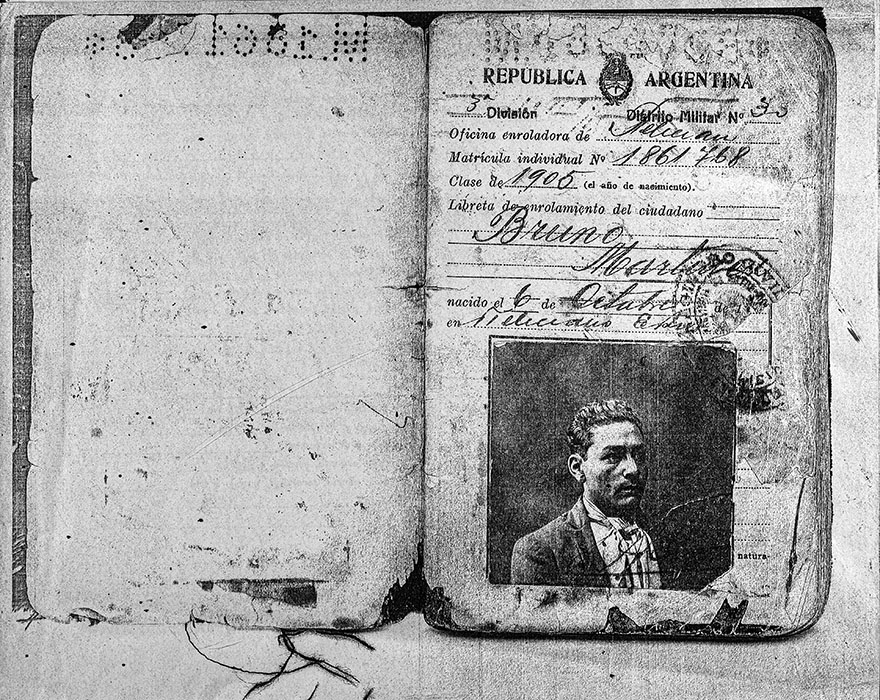 REPÚBLICA ARGENTINA
5ª División Distrito Militar Nº
Oficina enroladora de
Matrícula individual Nº 1861768
Clase de 1905 (el año de nacimiento).
Libreta de enrolamiento del ciudadano
Bruno
nacido el 6 de Octubre
en Feliciano
natura-